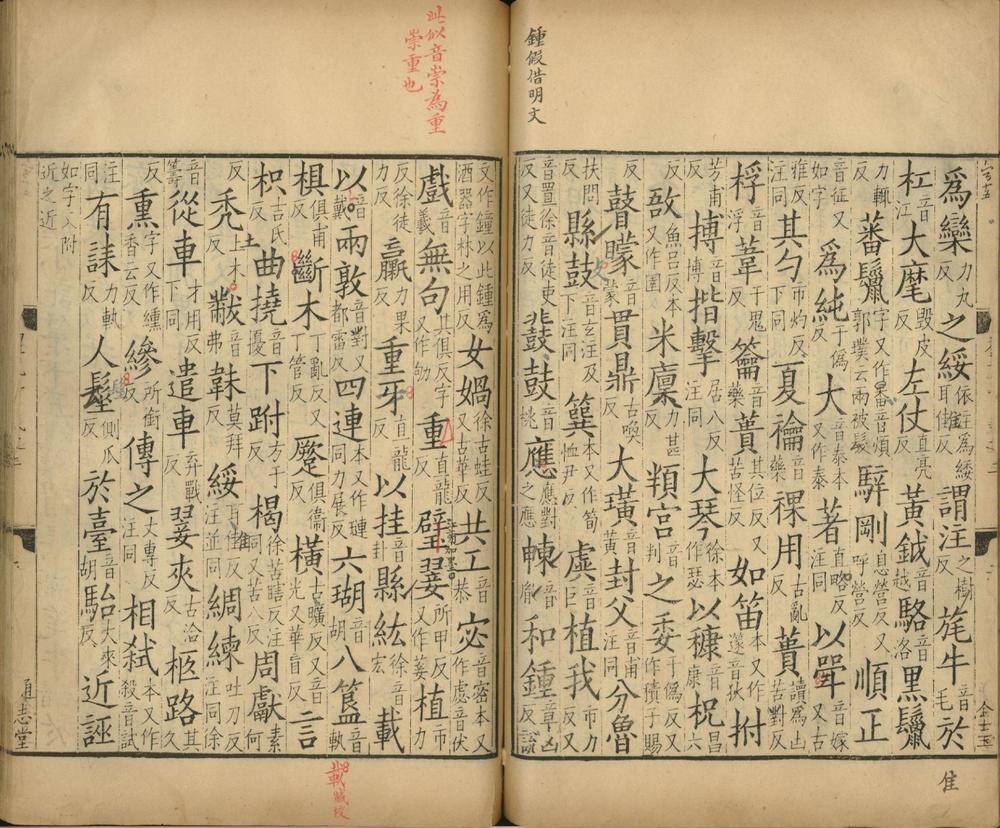 鍾假借明文
爲欒力丸反之綏依注爲緌耳隹反謂注之樹反旄牛音毛於
杠音江大麾毀皮反左仗直亮反黃鉞音越駱音洛黑鬣
力輒反蕃鬣字又作番音煩郭璞云兩被髮騂剛息營反又呼營反順正
音征又如字爲純于僞反大音泰本又作泰著直略反注同以斝音嫁又古
雅反注同其勺市灼反下同夏禴音藥祼用古亂反蕢讀爲凷苦對反
桴音浮葦于鬼反籥音藥蕢其位反又苦怪反如笛本又作篴音狄拊
芳甫反搏音博揩擊居八反注同大琴徐本作瑟以穅音康柷昌六反
敔魚呂反本又作圉米廩力甚反頖宮音判之委于僞反又作積子賜
反瞽矇音蒙貫鼎古喚反大璜音黃封父音甫注同分魯
扶問反縣鼓音玄注及下注同簨本又作筍恤尹反虡音巨植我市力反又
音置徐音徒吏反又徒力反鼗鼓音桃應應對之應朄音胤和鍾章凶反說
隹
此似音崇為重
崇重也
文作鍾以此鍾爲酒器字林之用反女媧徐古蛙反又古華反共工音恭宓音密本又作虙音伏
戲音義無句其俱反字又作劬重直龍反璧翣所甲反又作萐植市力
反徐徒力反臝力果反重牙直龍反以挂音卦縣紘徐音宏載
以音戴兩敦音對又都雷反四連本又作璉同力展反六瑚音胡八簋音軌
椇俱甫反斷木丁亂反又丁管反蹷俱衞反橫古曠反又音光又華盲反言
枳吉氏反曲撓音擾下跗方于反楬徐苦瞎反注同又苦八反周獻素何
反禿土木反黻音弗韎莫拜反綏耳隹反注並同綢練吐刀反注同徐
音籌從車才用反下同遣車弃戰反翣夾古洽反柩路其久
反熏香云反字又作纁縿所銜反傳之大專反注同相弒本又作殺音試
注同有誄力軌反人髽側瓜反於臺音胡駘大來反近誣
如字又附近之近
通志堂